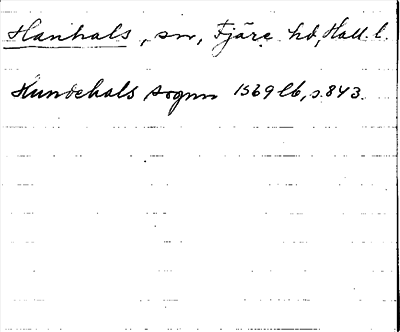 Hanhals, sn, Fjäre hd, Hall. l.
Hundehals sognn 1569 lb, s. 843.